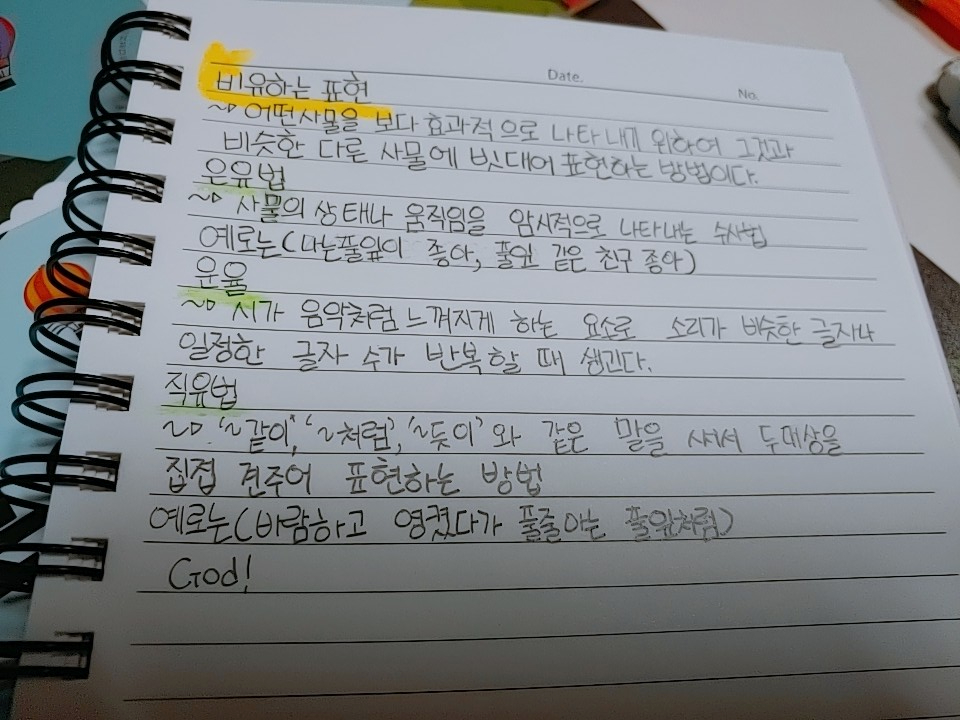 Date.
No.
비유하는 표현
~▷ 어떤사물을 보다 효과적으로 나타내기 위하여 그것과
비슷한 다른 사물에 빗대어 표현하는 방법이다.
은유법
~▷ 사물의 상태나 움직임을 암시적으로 나타내는 수사법
예로는(나는풀잎이 좋아, 풀잎 같은 친구 좋아)
운율
~▷ 시가 음악처럼 느껴지게 하는 요소로 소리가 비슷한 글자나
일정한 글자 수가 반복할 때 생긴다.
직유법
~▷ '~같이', '~처럼', '~듯이' 와 같은 말을 써서 두대상을
집접 견주어 표현하는 방법
예로는(바람하고 엉켰다가 풀줄아는 풀잎처럼)
God!